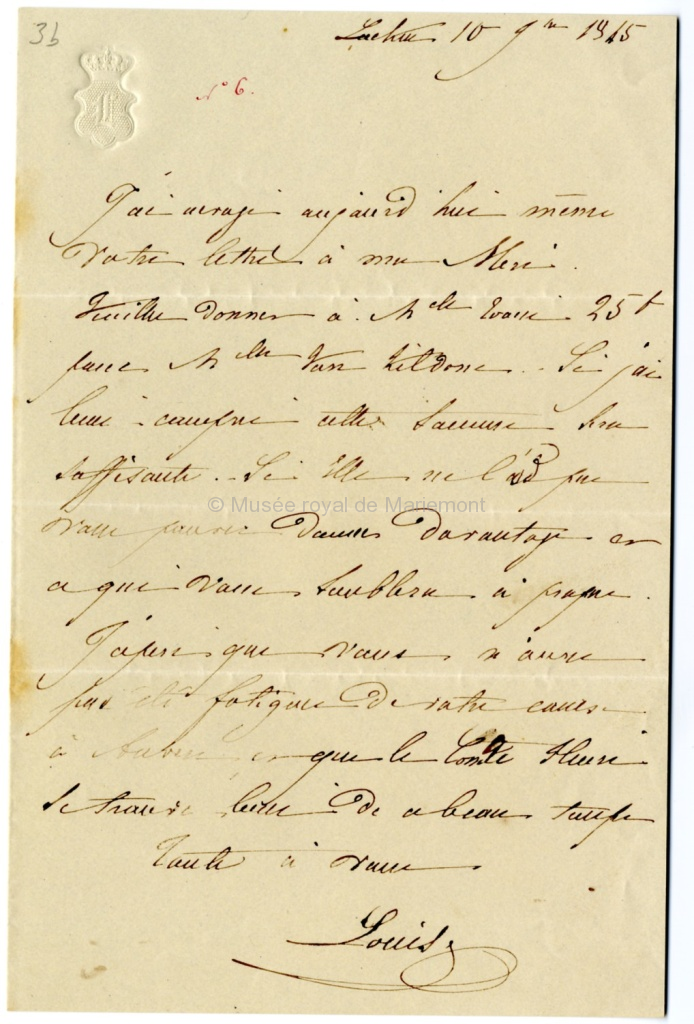 3b
Laeken 10 9bre 1845
N° 6.
J'ai envoyé aujourd'hui même
Votre lettre à ma Mère.
Veuillez donner à Mlle 25 f
pour Mlle Van . Si j'ai
bien compris cette somme sera
suffisante. Si Elle ne l'est pas
vous pouvez Donner Davantage en
ce qui vous semblera à propos.
J'espère que vous n'aurez
pas été fatiguée De votre course
à Anvers, et que le Comte Henri
se trouve bien De ce beau temps
Toute à vous
Louise
© Musée royal de Mariemont